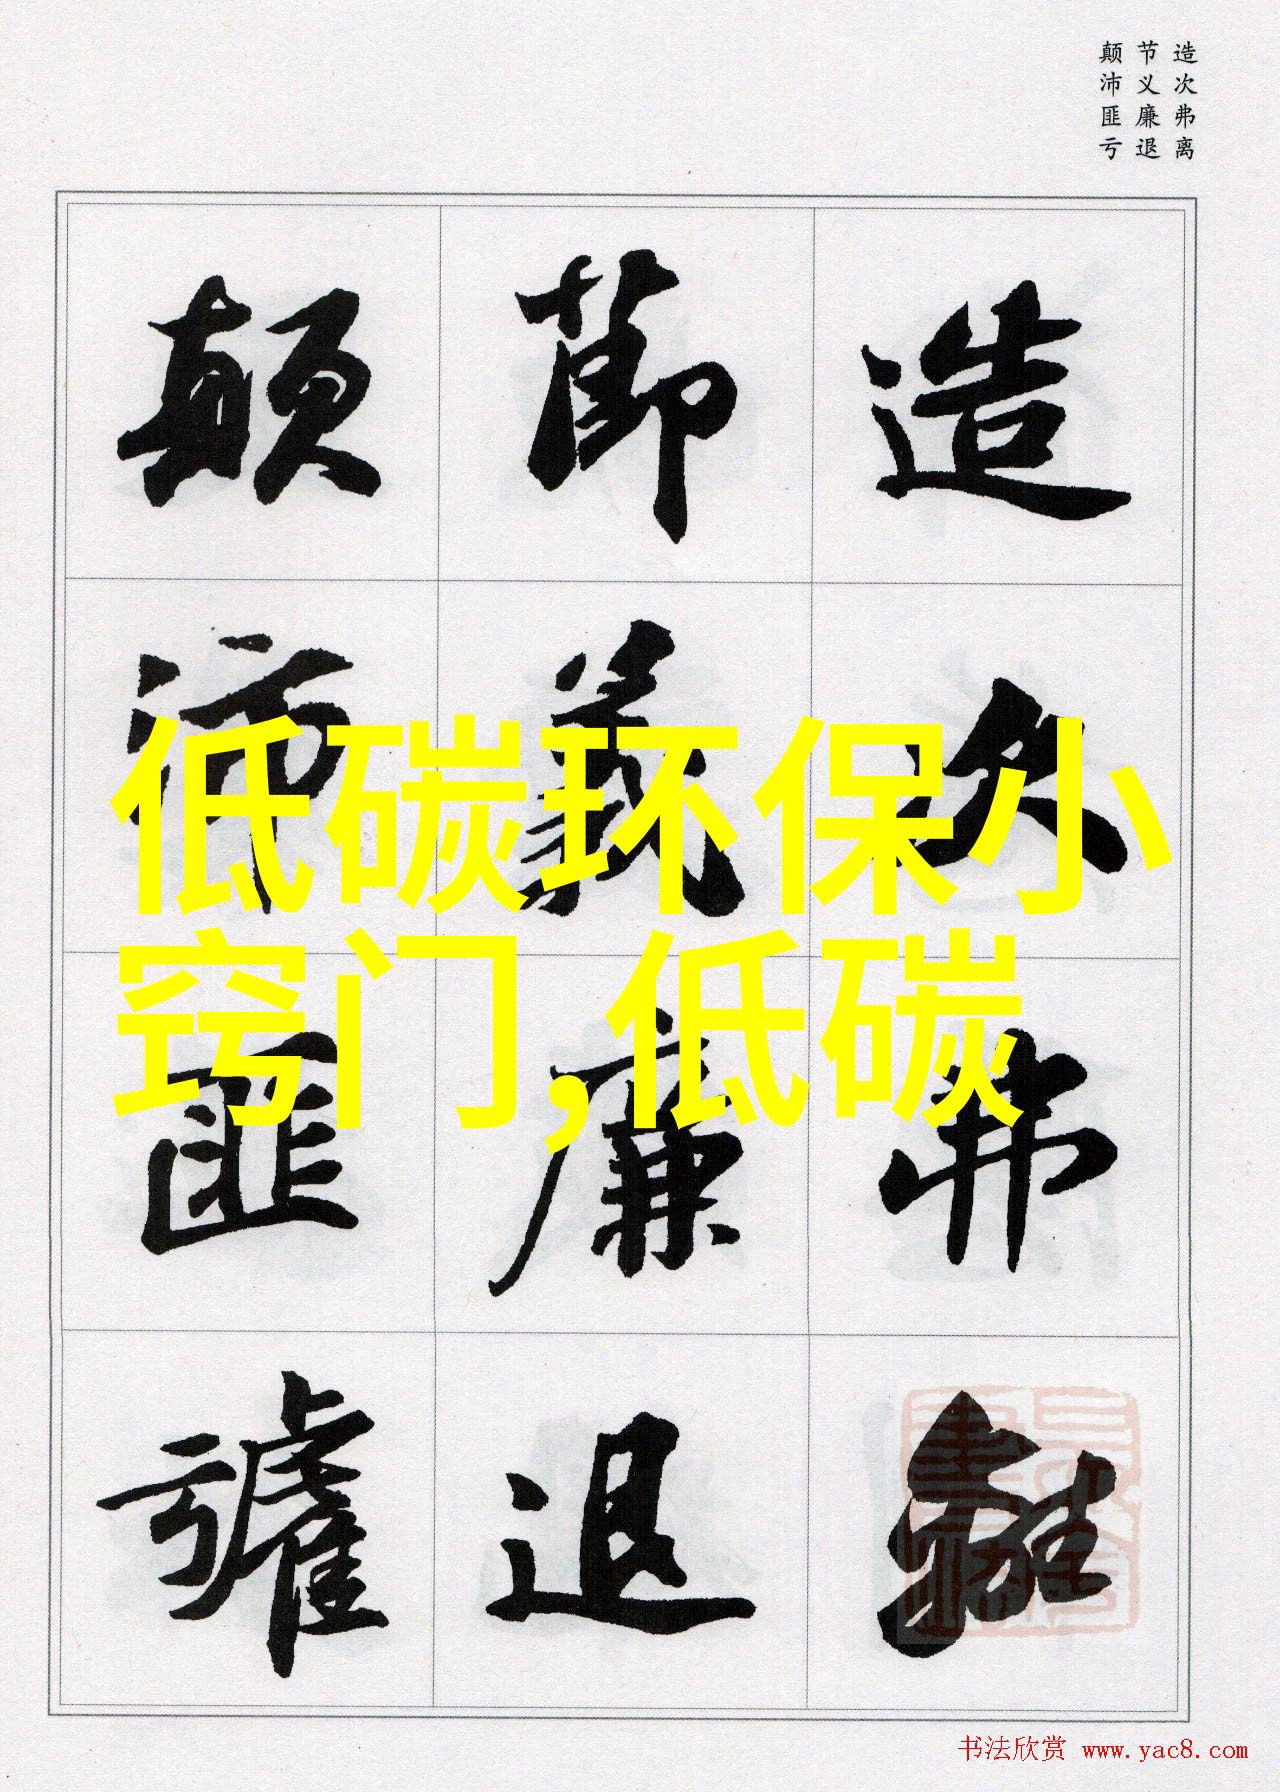 造次弗离
节义廉退
颠沛匪亏
造次弗離
節義廉退
顛沛匪虧
低碳环保小
窍门,低碳
书法欣赏 www.yac8.com